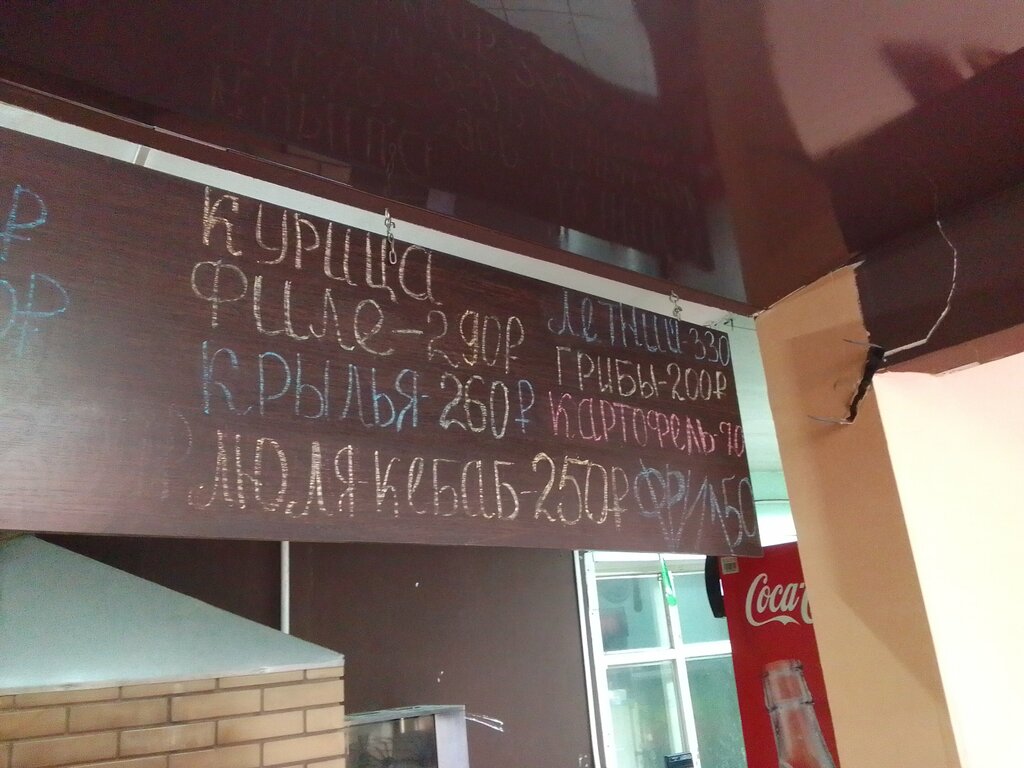 ₽
0₽
КУРИЦА
ФИЛЕ-290₽
КРЫЛЬЯ-260₽
ЛЮЛЯ-КЕБАБ-250₽
ЛЕТНИЙ-330
ГРИБЫ-200₽
КАРТОФЕЛЬ-70
ФРИ
Coca-C